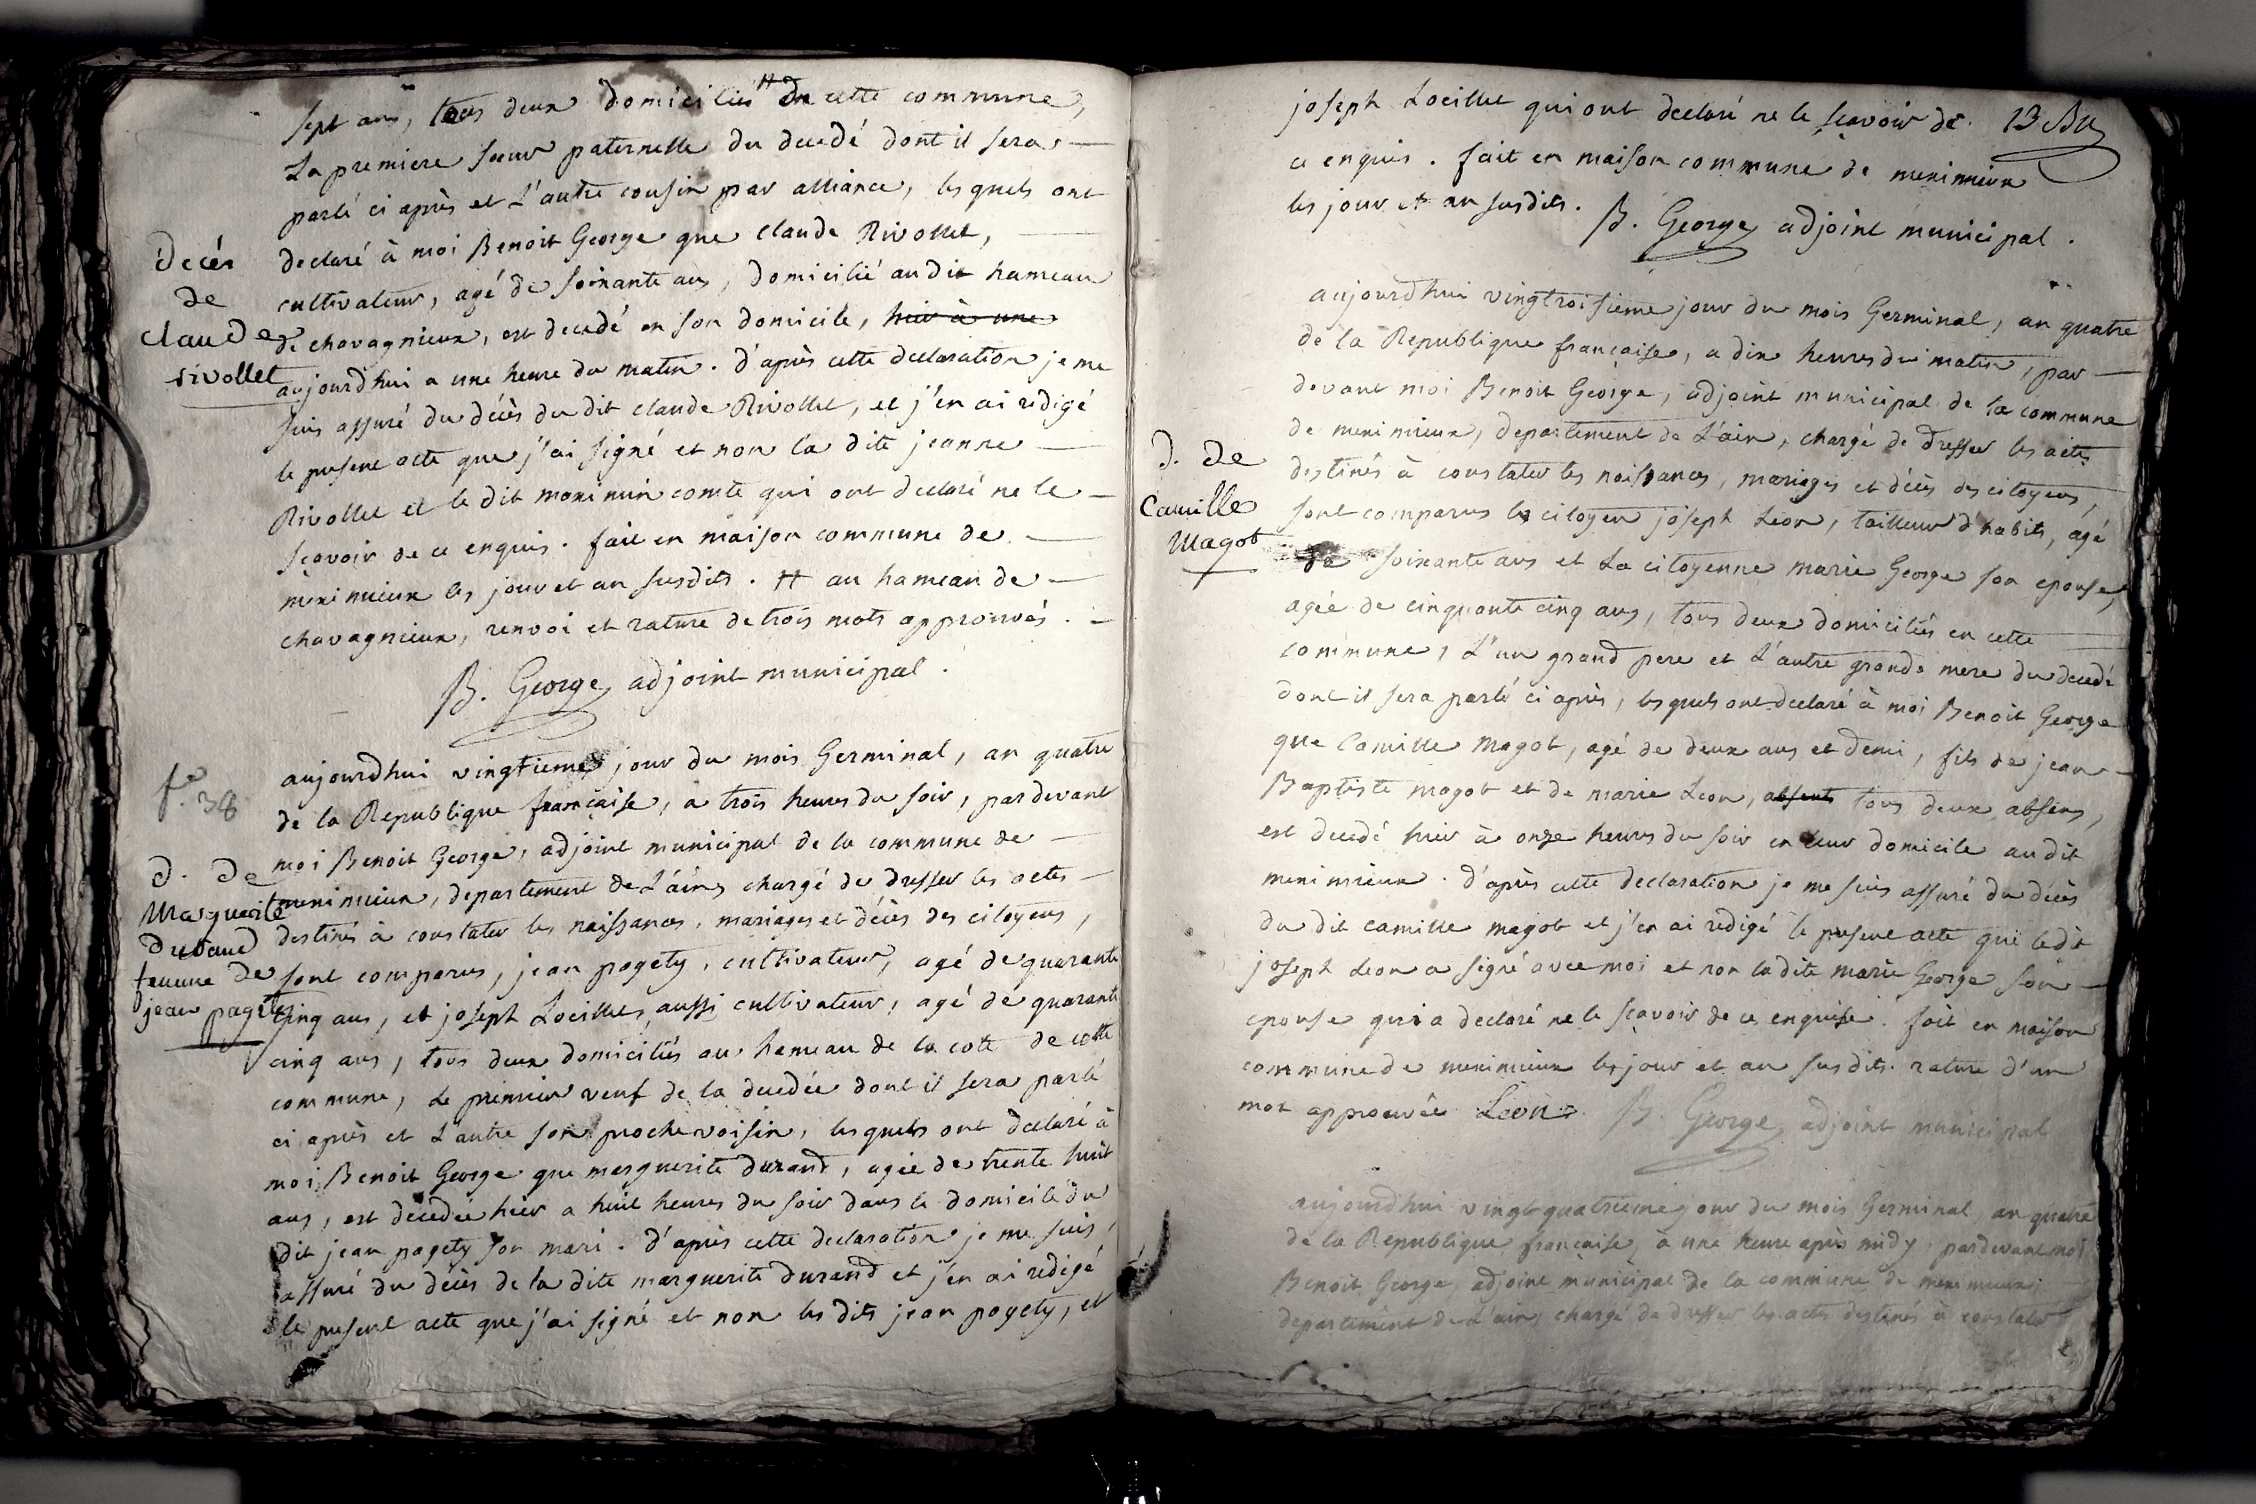 sept ans, tous deux domiciliés # de cette commune,
La premiere sœur paternelle du decedé dont il sera
parlé ci après et L'autre cousin par alliance, les quels ont
declaré à moi Benoit George que claude Rivollet,
cultivateur, agé de soixante ans, domicilié au dit hameau
de chavagnieux, est decedé en son domicile, hier à une
aujourdhui a une heure du matin. d'après cette declaration je me
suis assuré du décès du dit claude Rivollet, et j'en ai redigé
le present acte que j'ai signé et non la dite jeanne
Rivollet et le dit maximin comte qui ont declaré ne le
sçavoir de ce enquis. fait en maison commune de
meximieux les jour et an susdits. # au hameau de
chavagnieux, renvoi et rature de trois mots approuvés.
B. George adjoint municipal.
décés
de
claude
rivollet
f.º 38
aujourdhui vingtieme jour du mois Germinal, an quatre
de la Republique française, a trois heures du soir, pardevant
moi Benoit George, adjoint municipal de la commune de
meximieux, departement de L'ain, chargé de dresser les actes
destinés à constater les naissances, mariages et décès des citoyens,
sont comparus, jean pagety, cultivateur, agé de quarante
cinq ans, et joseph Loeillet, aussi cultivateur, agé de quarante
cinq ans, tous deux domiciliés au hameau de la cote de cette
commune, Le premier veuf de la decedée dont il sera parlé
ci après et L'autre son proche voisin, les quels ont declaré à
moi Benoit George que marguerite durand, agée de trente huit
ans, est decedée hier a huit heures du soir dans le domicile du
dit jean pagety son mari. d'après cette declaration je me suis
assuré du décès de la dite marguerite durand et j'en ai redigé
le present acte que j'ai signé et non les dits jean pagety, et
d. de
Marguerite
durand
femme de
jean pagety
joseph Loeillet qui ont declaré ne le sçavoir de
ce enquis. fait en maison commune de meximieux
les jour et an susdits.
B. George adjoint municipal.
13
aujourdhui vingtroisieme jour du mois Germinal, an quatre
de la Republique française, a dix heures du matin, par
devant moi Benoit George, adjoint municipal de la commune
de meximieux, departement de L'ain, chargé de dresser les actes
destinés à constater les naissances, mariages et décès des citoyens,
sont comparus le citoyen joseph Leon, tailleur d'habits, agé
de soixante ans et La citoyenne marie George son epouse,
agée de cinquante cinq ans, tous deux domiciliés en cette
commune, L'un grand pere et L'autre grande mere du decedé
dont il sera parlé ci après, les quels ont declaré à moi Benoit George
que Camille magot, agé de deux ans et demi, fils de jean
Baptiste magot et de marie Leon, absents tous deux absens,
est decedé hier à onze heures du soir en leur domicile au dit
meximieux. d'après cette declaration je me suis assuré du décès
du dit camille magot et j'en ai redigé le present acte que le dit
joseph Leon a signé avec moi et non la dite marie George son
epouse qui a declaré ne le sçavoir de ce enquise. fait en maison
commune de meximieux les jour et an susdits. rature d'un
mot approuvée Leon. B George adjoint municipal
d. de
Camille
Magot
aujourdhui vingt quatrieme jour du mois Germinal, an quatre
de la Republique française, a une heure après midy, pardevant moi
Benoit George, adjoint municipal de la commune de meximieux,
departement de L'ain, chargé de dresser les actes destinés à constater